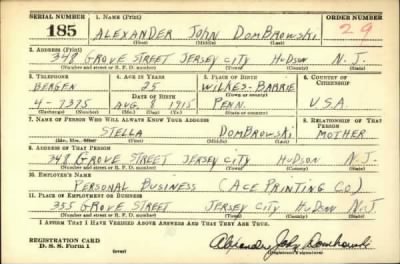 SERIAL NUMBER 1. NAME (Print) ORDER NUMBER
185 ALEXANDER JOHN DOMBROWSKI 29
(First) (Middle) (Last)
2. ADDRESS (Print)
348 GROVE STREET JERSEY CITY HUDSON N.J.
(Number and street or R. F. D. number) (Town) (County) (State)
3. TELEPHONE 4. AGE IN YEARS 5. PLACE OF BIRTH 6. COUNTRY OF CITIZENSHIP
BERGEN 25 WILKES-BARRIE
DATE OF BIRTH (Town or county)
4-7375 AUG 8 1915 PENN. USA
(Mo.) (Day) (Yr.) (State or country)
7. NAME OF PERSON WHO WILL ALWAYS KNOW YOUR ADDRESS 8. RELATIONSHIP OF THAT PERSON
STELLA DOMBROWSKI MOTHER
(Mr., Mrs., Miss) (First) (Middle) (Last)
9. ADDRESS OF THAT PERSON
348 GROVE STREET JERSEY CITY HUDSON N.J.
(Number and street or R. F. D. number) (Town) (County) (State)
10. EMPLOYER'S NAME
PERSONAL BUSINESS (ACE PRINTING CO.)
11. PLACE OF EMPLOYMENT OR BUSINESS
355 GROVE STREET JERSEY CITY HUDSON N.J
(Number and street or R. F. D. number) (Town) (County) (State)
I AFFIRM THAT I HAVE VERIFIED ABOVE ANSWERS AND THAT THEY ARE TRUE.
REGISTRATION CARD
D. S. S. Form 1 (over) Alexander John Dombrowski
(Registrant's signature)